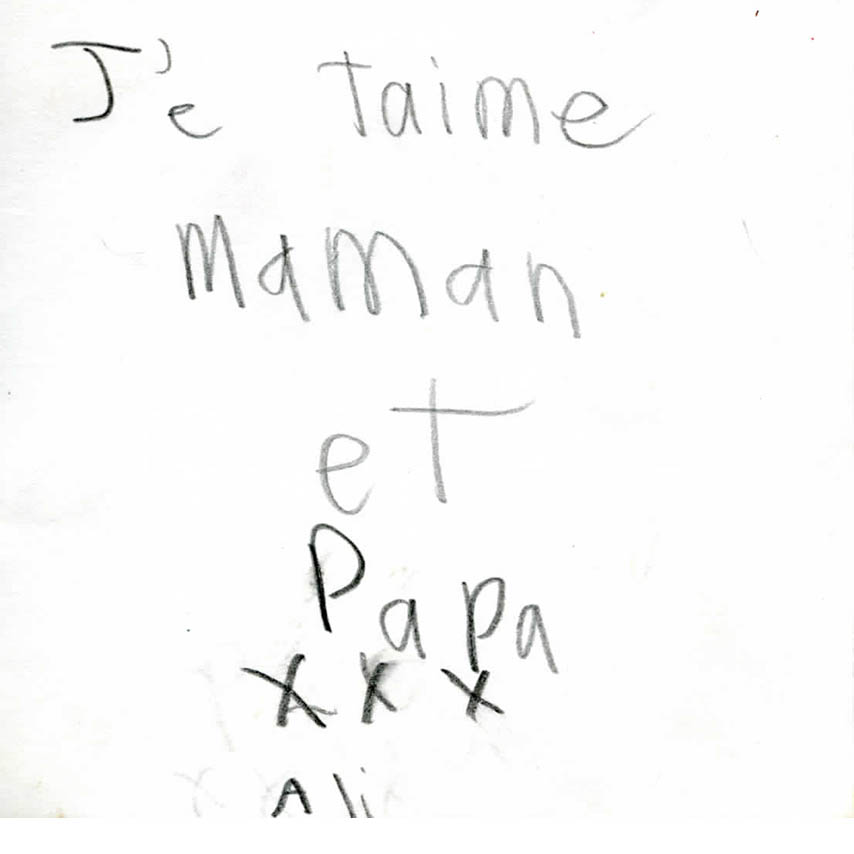 J'e taime
Maman
et
Papa
x x x
Ali